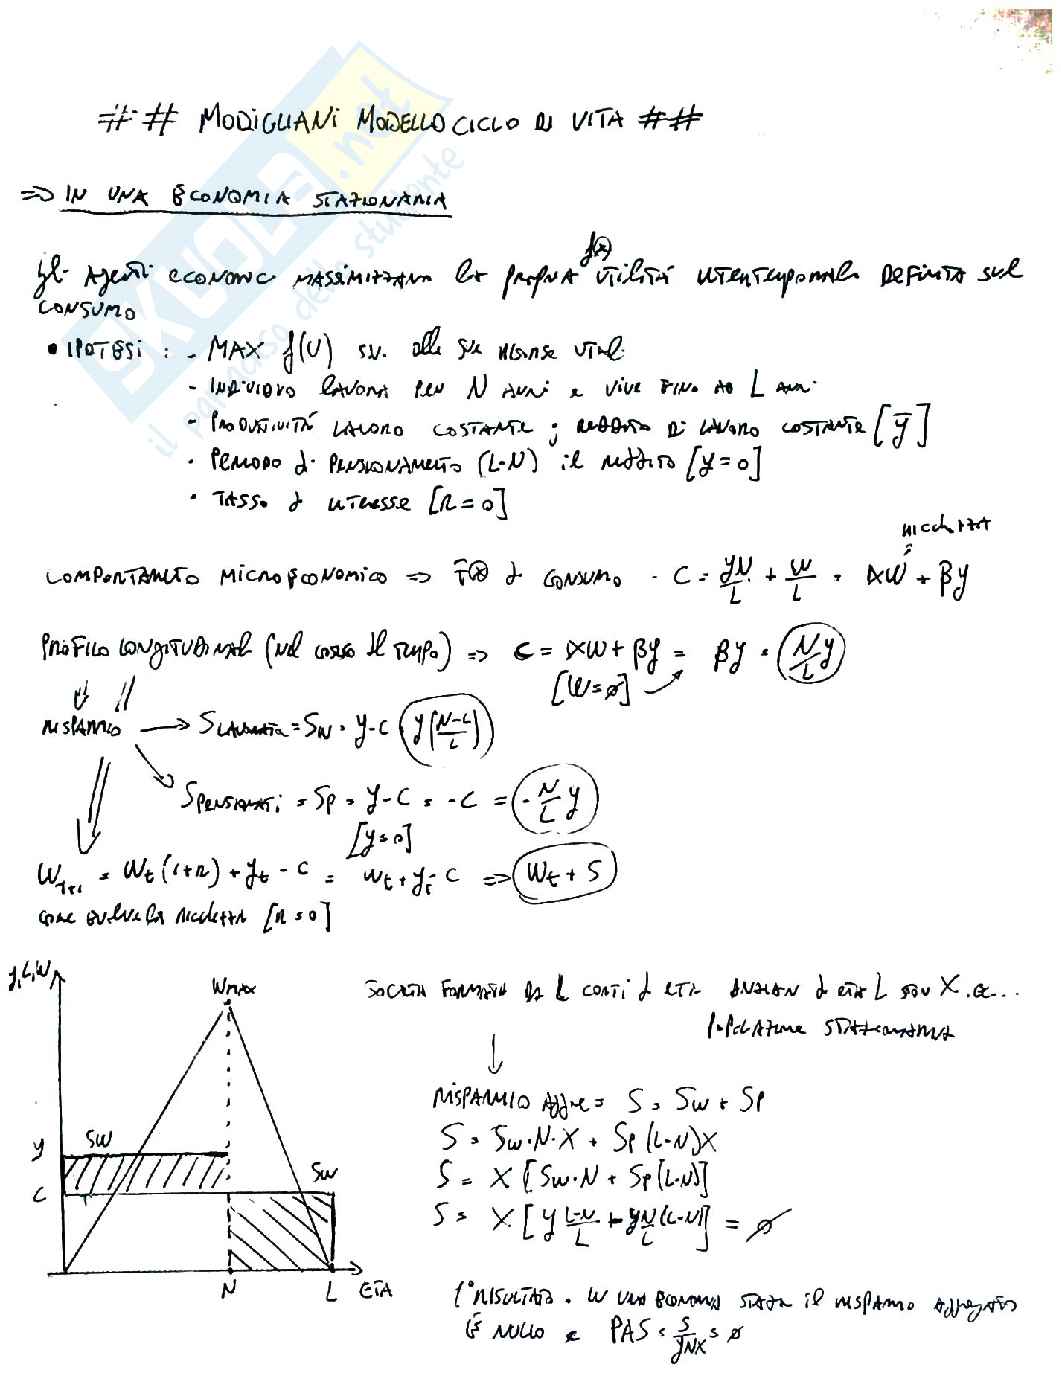 ## MODIGLIANI MODELLO CICLO DI VITA ##
SKUOLA.net
il paradiso dello studente
=> IN UNA ECONOMIA STAZIONARIA
f(x)
Gli Agenti economici MASSIMIZZANO la propria utilità intertemporale DEFINITA sul
CONSUMO
• IPOTESI : - MAX f(U) s.v. alle sue risorse vitali
- INDIVIDUO LAVORA PER N ANNI e VIVE FINO AD L anni
- PRODUTTIVITÁ LAVORO COSTANTE ; REDDITO DI LAVORO COSTANTE [ȳ]
- PERIODO di PENSIONAMENTO (L-N) il reddito [y=0]
- TASSO d'INTERESSE [R=0]
ricchezza
COMPORTAMENTO MICROECONOMICO => f(x) di CONSUMO - C = yN/L + W/L = αW + βy
PROFILO LONGITUDINALE (nel corso del tempo) => C = αW + βy = βy = N/L y
[W=ø]
RISPARMIO → S LAVORATORI = SN = y-C y(N-L/L)
S PENSIONATI = Sp = y-C = -C = -N/L y
[y=0]
Wt+1 = Wt (1+R) + yt - C = Wt + yt - C => Wt + S
come evolve la ricchezza [R=0]
y,C,W
WMAX
SOCIETÀ FORMATA DA L COORTI di ETÀ
L X
POPOLAZIONE STAZIONARIA
RISPARMIO Aggre = S = Sw + Sp
S = Sw·N·X + Sp(L-N)X
S = X [Sw·N + Sp(L-N)]
S = X [y L-N/L + yN/L (L-N)] = ø
y
SW
C
SW
N
L
ETÀ
1° RISULTATO. IN UNA ECONOMIA STAZ. il RISPARMIO Aggregato
È NULLO e PAS = S/yNX = ø